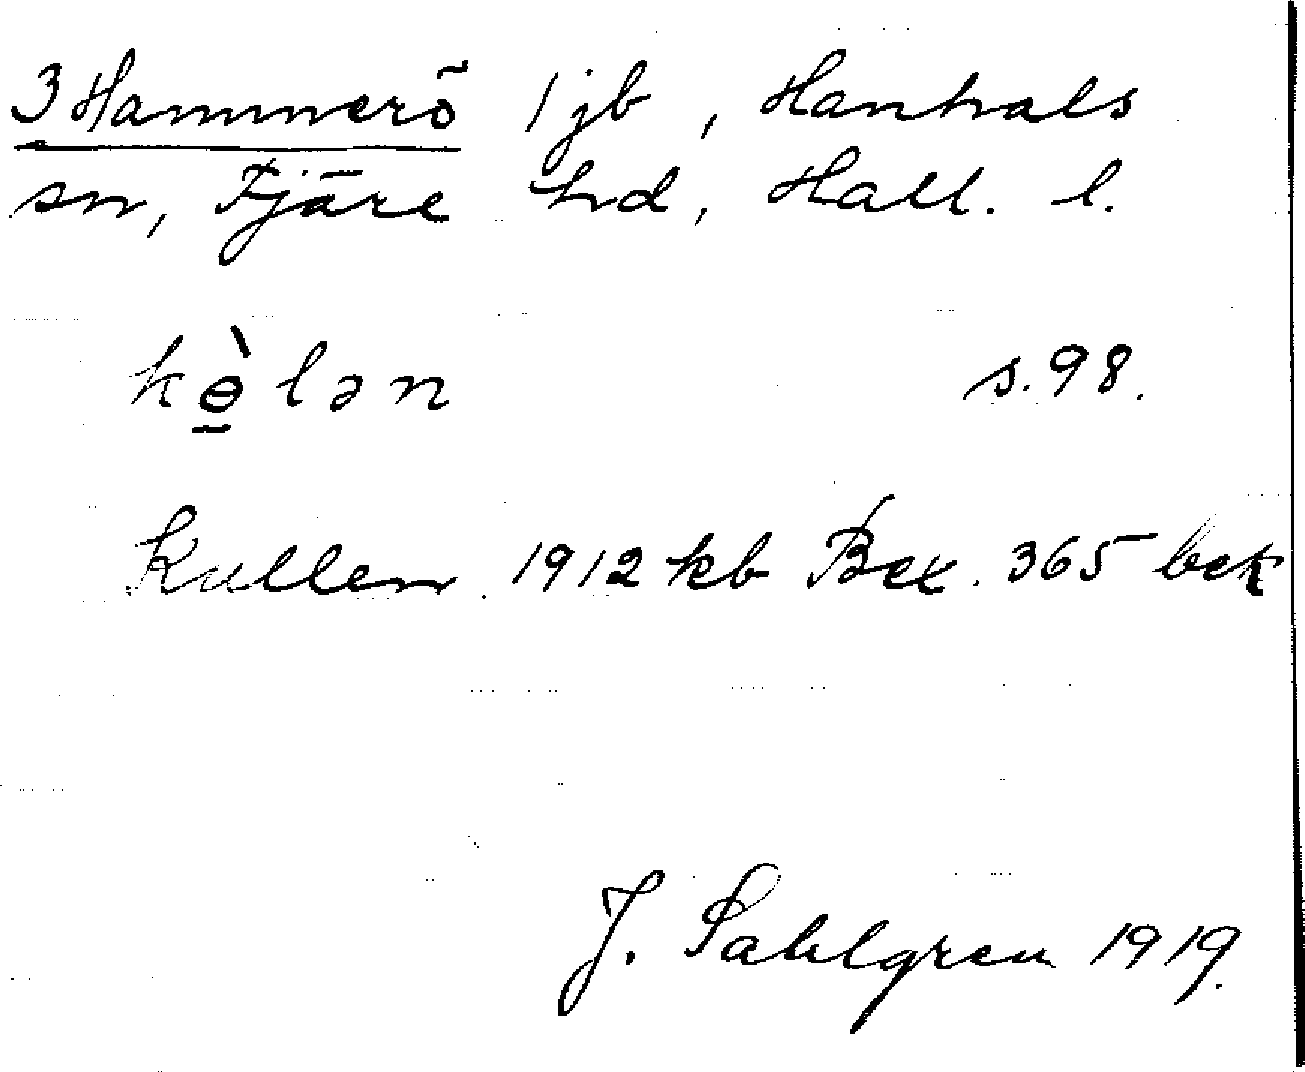 3 Hammerö 1 jb, Hanhals
sn, Fjäre hd, Hall. l.
kɵ̱̀lən s. 98.
Kullen 1912 kb Bex. 365 bek
J. Sahlgren 1919.